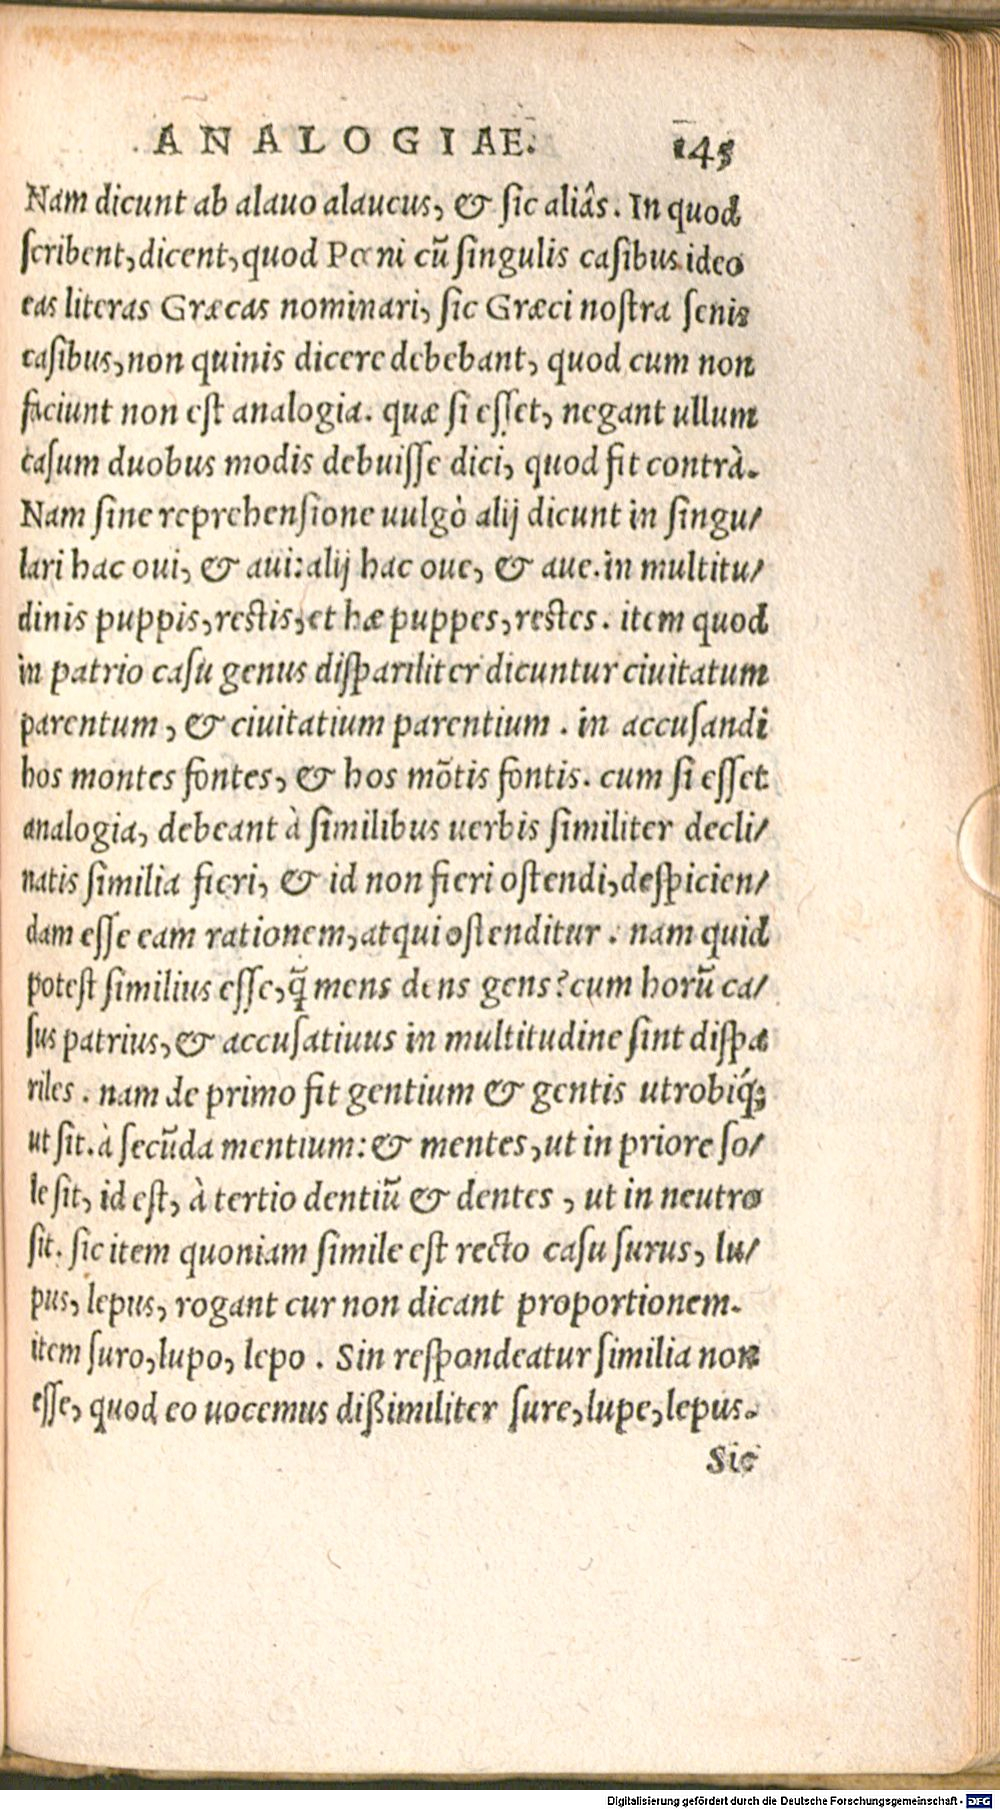 ANALOGIAE. 145
Nam dicunt ab alauo alaucus, & sic aliâs. In quod
scribent, dicent, quod Pœni cū singulis casibus ideo
eas literas Græcas nominari, sic Græci nostra senis
casibus, non quinis dicere debebant, quod cum non
faciunt non est analogia. quæ si esset, negant ullum
casum duobus modis debuisse dici, quod fit contrà.
Nam sine reprehensione uulgò alij dicunt in singu/
lari hac oui, & aui: alij hac oue, & aue. in multitu/
dinis puppis, restis, et hæ puppes, restes. item quod
in patrio casu genus dispariliter dicuntur ciuitatum
parentum, & ciuitatium parentium. in accusandi
hos montes fontes, & hos mōtis fontis. cum si esset
analogia, debeant à similibus uerbis similiter decli/
natis similia fieri, & id non fieri ostendi, despicien/
dam esse eam rationem, atqui ostenditur. nam quid
potest similius esse, q̃ mens dens gens? cum horū ca/
sus patrius, & accusatiuus in multitudine sint dispa
riles. nam de primo fit gentium & gentis utrobiq́;
ut sit. à secūda mentium: & mentes, ut in priore so/
le sit, id est, à tertio dentiū & dentes, ut in neutro
sit. sic item quoniam simile est recto casu surus, lu/
pus, lepus, rogant cur non dicant proportionem.
item suro, lupo, lepo. Sin respondeatur similia non
esse, quod eo uocemus dißimiliter sure, lupe, lepus.
Sic
Digitalisierung gefördert durch die Deutsche Forschungsgemeinschaft - DFG